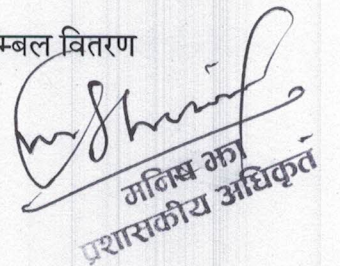 म्बल वितरण
मनिष झा
प्रशासकीय अधिकृत